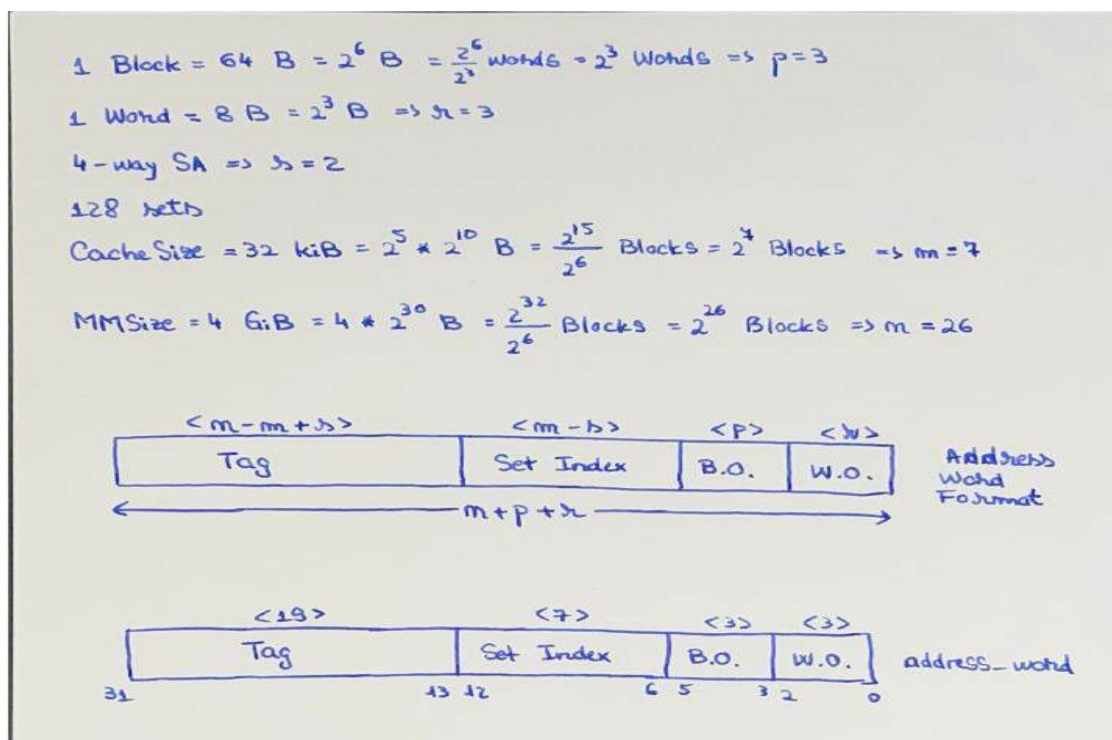 1 Block = 64 B = 2^6 B = 2^6/2^3 words = 2^3 Words => p=3
1 Word = 8 B = 2^3 B => r=3
4-way SA => s=2
128 sets
CacheSize = 32 kiB = 2^5 * 2^10 B = 2^15/2^6 Blocks = 2^7 Blocks => m=7
MMSize = 4 GiB = 4 * 2^30 B = 2^32/2^6 Blocks = 2^26 Blocks => n=26
<n-m+s> <m-s> <p> <r>
Tag Set Index B.O. W.O. Address
Word
Format
n+p+r
<19> <7> <3> <3>
Tag Set Index B.O. W.O. address_word
31 13 12 6 5 3 2 0